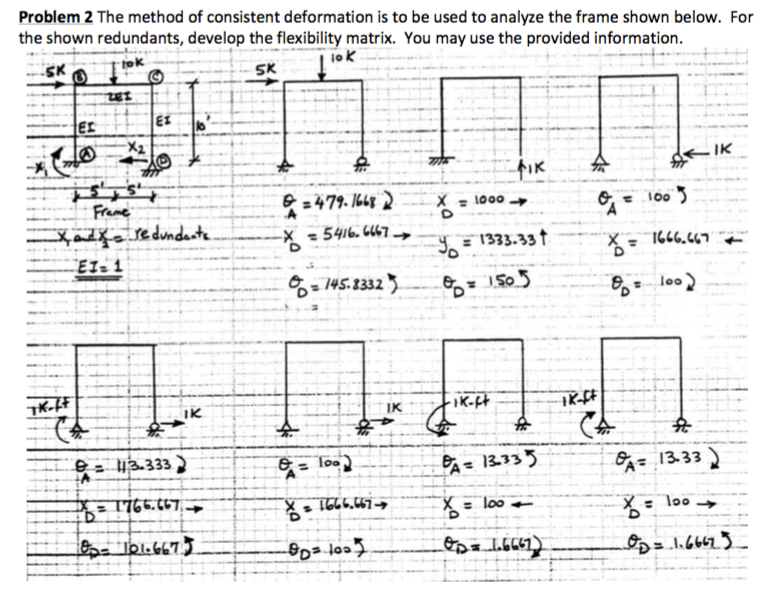 Problem 2 The method of consistent deformation is to be used to analyze the frame shown below. For
the shown redundants, develop the flexibility matrix. You may use the provided information.
5K B 10K C
2EI
EI EI 10'
X1 A X2 D
5' 5'
Frame
X1 and X2 = redundants
EI = 1
5K 10K
θA = 479.1668
XD = 5416.6667 →
θD = 145.8332
1K
XD = 1000 →
yD = 1333.33 ↑
θD = 150
1K
θA = 100
XD = 1666.667 ←
θD = 100
1K-ft 1K
θA = 113.333
XD = 1766.667 →
θD = 101.667
1K
θA = 100
XD = 1666.667 →
θD = 100
1K-ft
θA = 13.33
XD = 100 ←
θD = 1.6667
1K-ft
θA = 13.33
XD = 100 →
θD = 1.6667